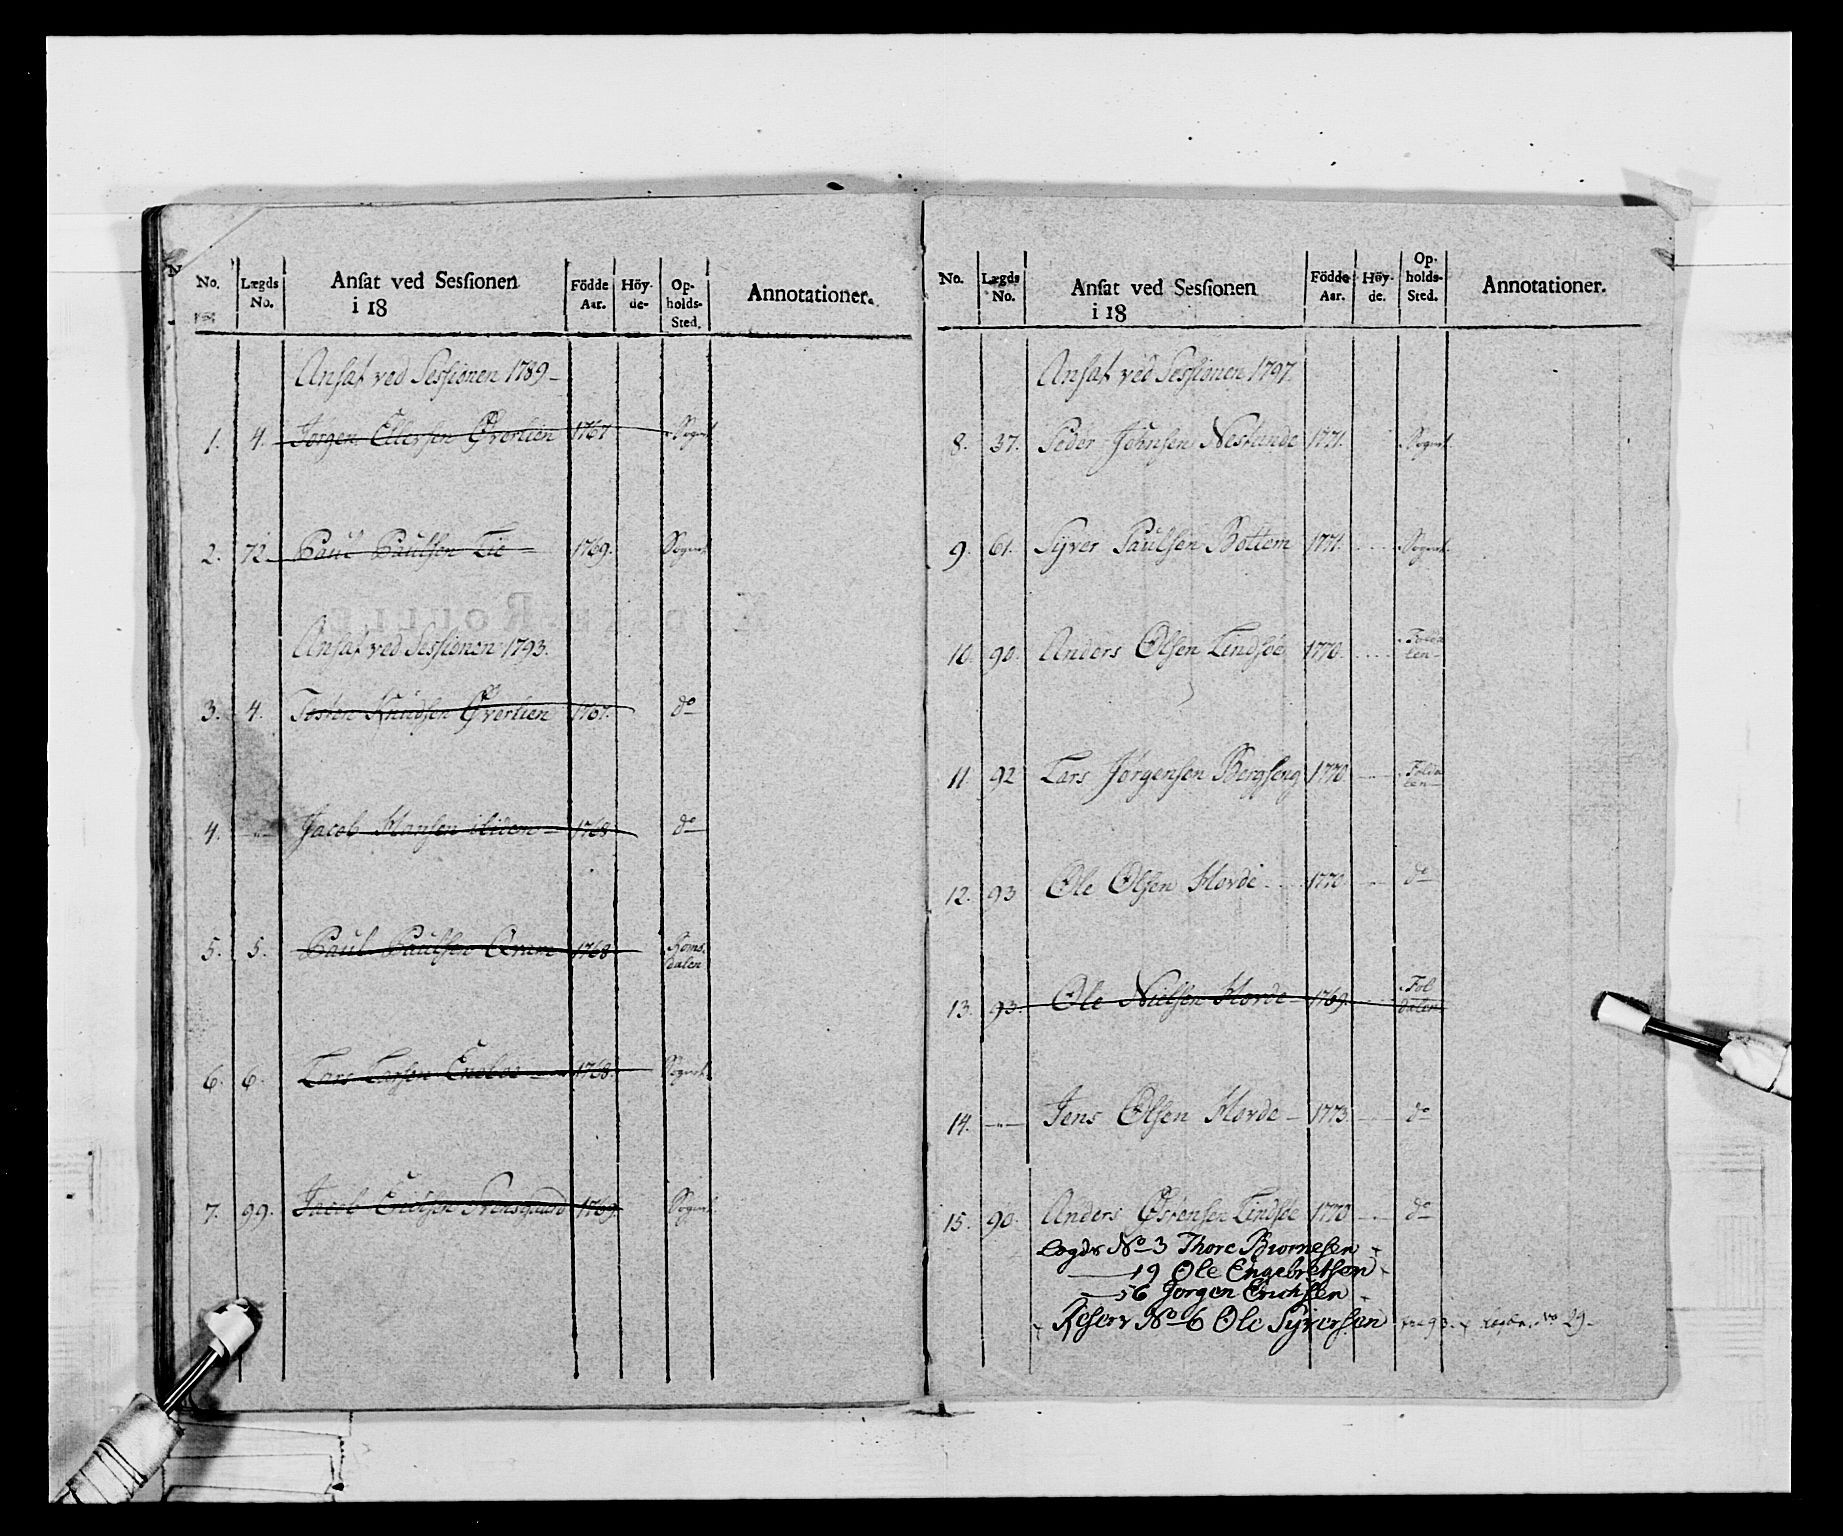 No. Lægds No. Ansat ved Sessionen i 18 Födde Aar. Höyde. Opholds-Sted. Annotationer.
Ansat ved Sessionen 1789
1. 4. Jørgen Ellefsen Øverlien 1767 Sognet
2. 72. Paul Paulsen Lie 1769. Sognet
Ansat ved Sessionen 1793.
3. 4. Tosten Knudsen Øverlien 1767. do
4. -"- Jacob Hansen 1768 do
5. 5. Paul Paulsen 1768 Romsdalen
6. 6. Lars Larsen 1768. Sognet
7. 99. Jacob 1769. Sognet
No. Lægds No. Ansat ved Sessionen i 18 Födde Aar. Höyde. Opholds-Sted. Annotationer.
Ansat ved Sessionen 1797.
8. 37. Peder Johnsen Neslande 1771. Sognet
9. 61. Syver Paulsen Bottem 1771. Sognet
10. 90. Anders Olsen Lindsøe 1770. Foldalen
11. 92 Lars Jørgensen Bergseng 1770 Foldalen
12. 93 Ole Olsen Horde 1770 do
13. 93. Ole Nielsen Horde 1769. Foldalen
14. -"- Jens Olsen Horde 1773. do
15. 90. Anders Østensen Lindsøe 1770 do
Lægds No 3 Thore Biørnesen
19 Ole Engebretsen
56 Jørgen Erichsen
Reserv No 6 Ole Syversen 93. 29.